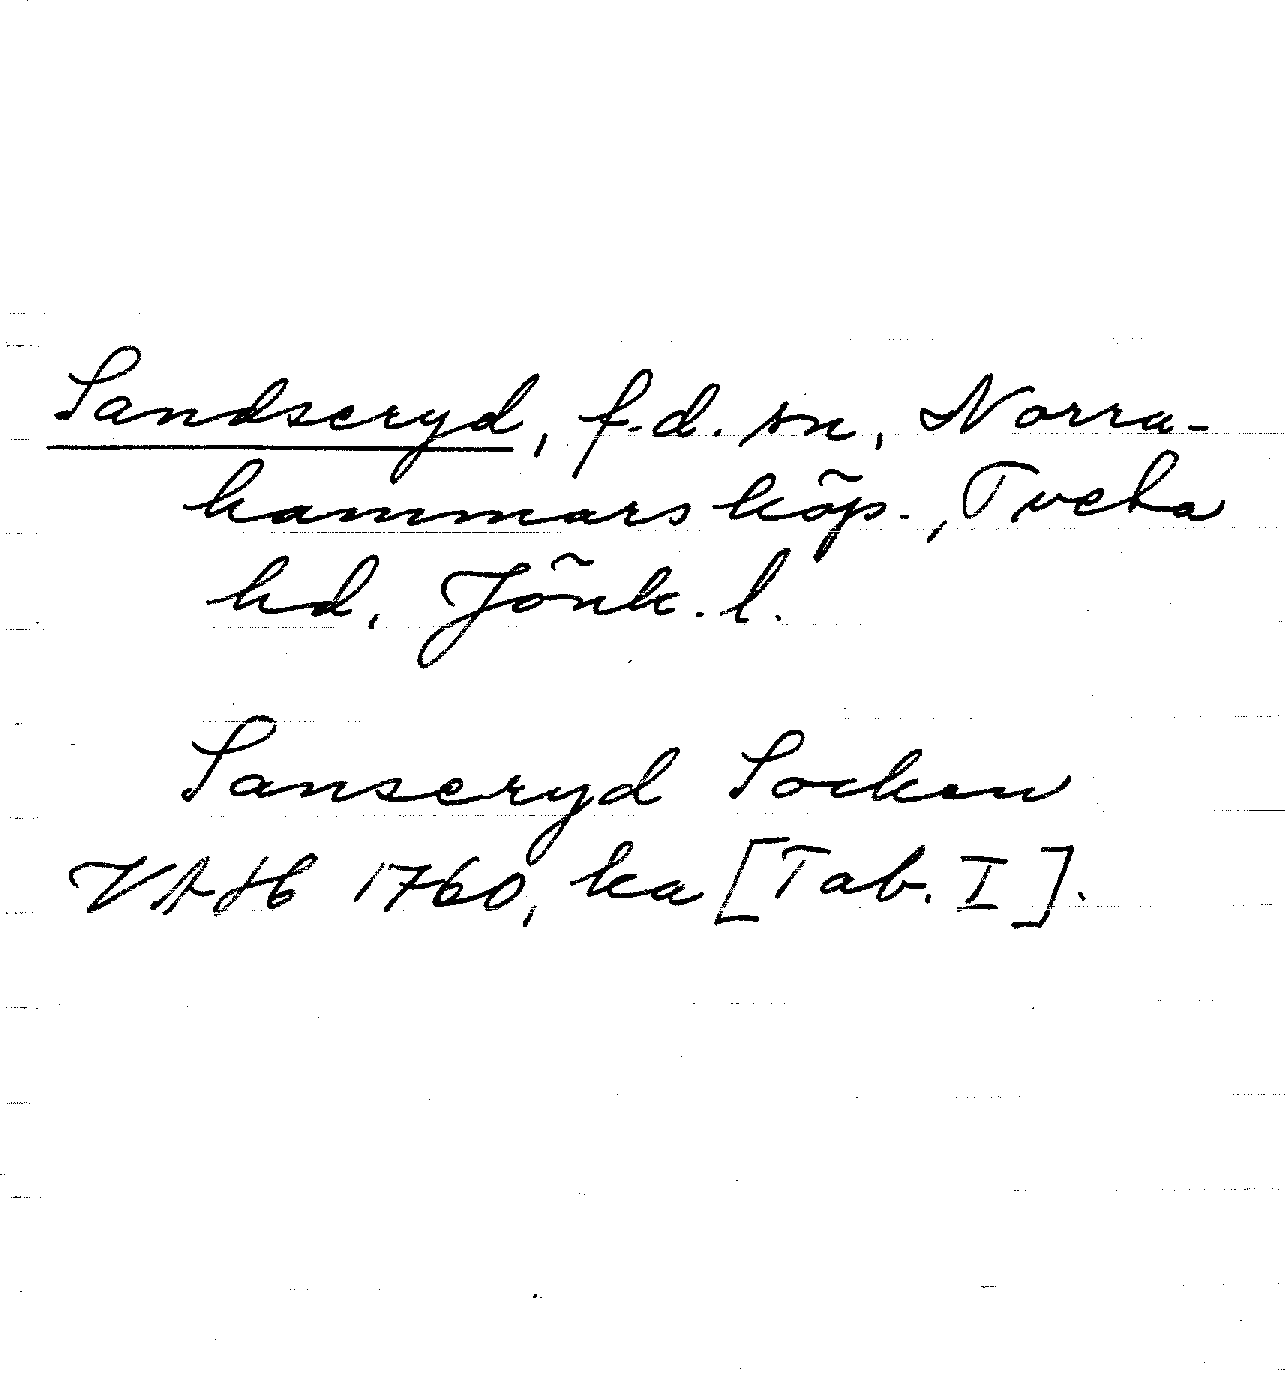 Sandseryd, f.d. sn, Norra-
hammars köp., Tveta
hd, Jönk. l.
Sanseryd Socken
VAH 1760, ka [Tab. I].